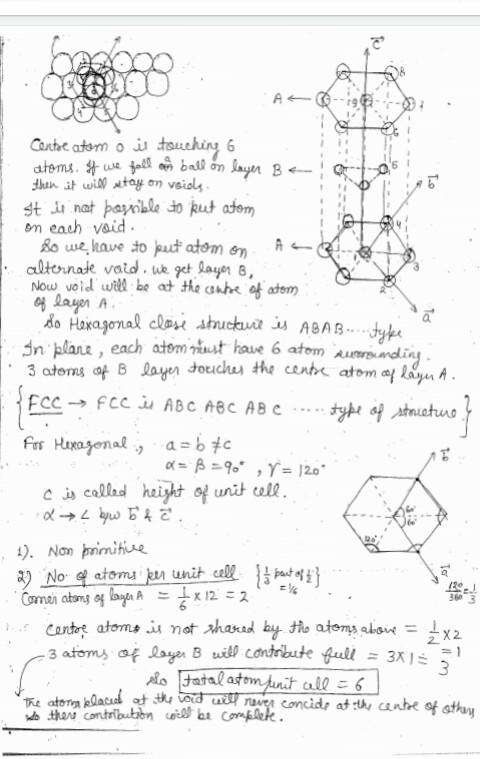 C
8
A ← 9 7
6
Centre atom o is touching 6
atoms. If we fall a ball on layer B ← 5
then it will stay on voids.
b
It is not possible to put atom
on each void.
4
So we have to put atom on A ←
3
alternate void. we get layer B,
Now void will be at the centre of atom 2
of layer A.
a
So Hexagonal close structure is ABAB..... type
In plane, each atom must have 6 atom surrounding.
3 atoms of B layer touches the centre atom of layer A.
{ FCC → FCC is ABC ABC ABC ..... type of structure }
For Hexagonal, a = b ≠ c
α = β = 90°, γ = 120°
b
C is called height of unit cell.
α → ∠ b/w b & c.
60°
60°
120°
1). Non primitive
a
2) No. of atoms per unit cell { 1/3 part of 1/2 } = 1/6
120/360 = 1/3
Corner atoms of layer A = 1/6 x 12 = 2
Centre atoms is not shared by the atoms above = 1/2 x 2 = 1
3 atoms of layer B will contribute full = 3 x 1 = 3
So total atom/unit cell = 6
The atoms placed at the void will never concide at the centre of others
so there contribution will be complete.